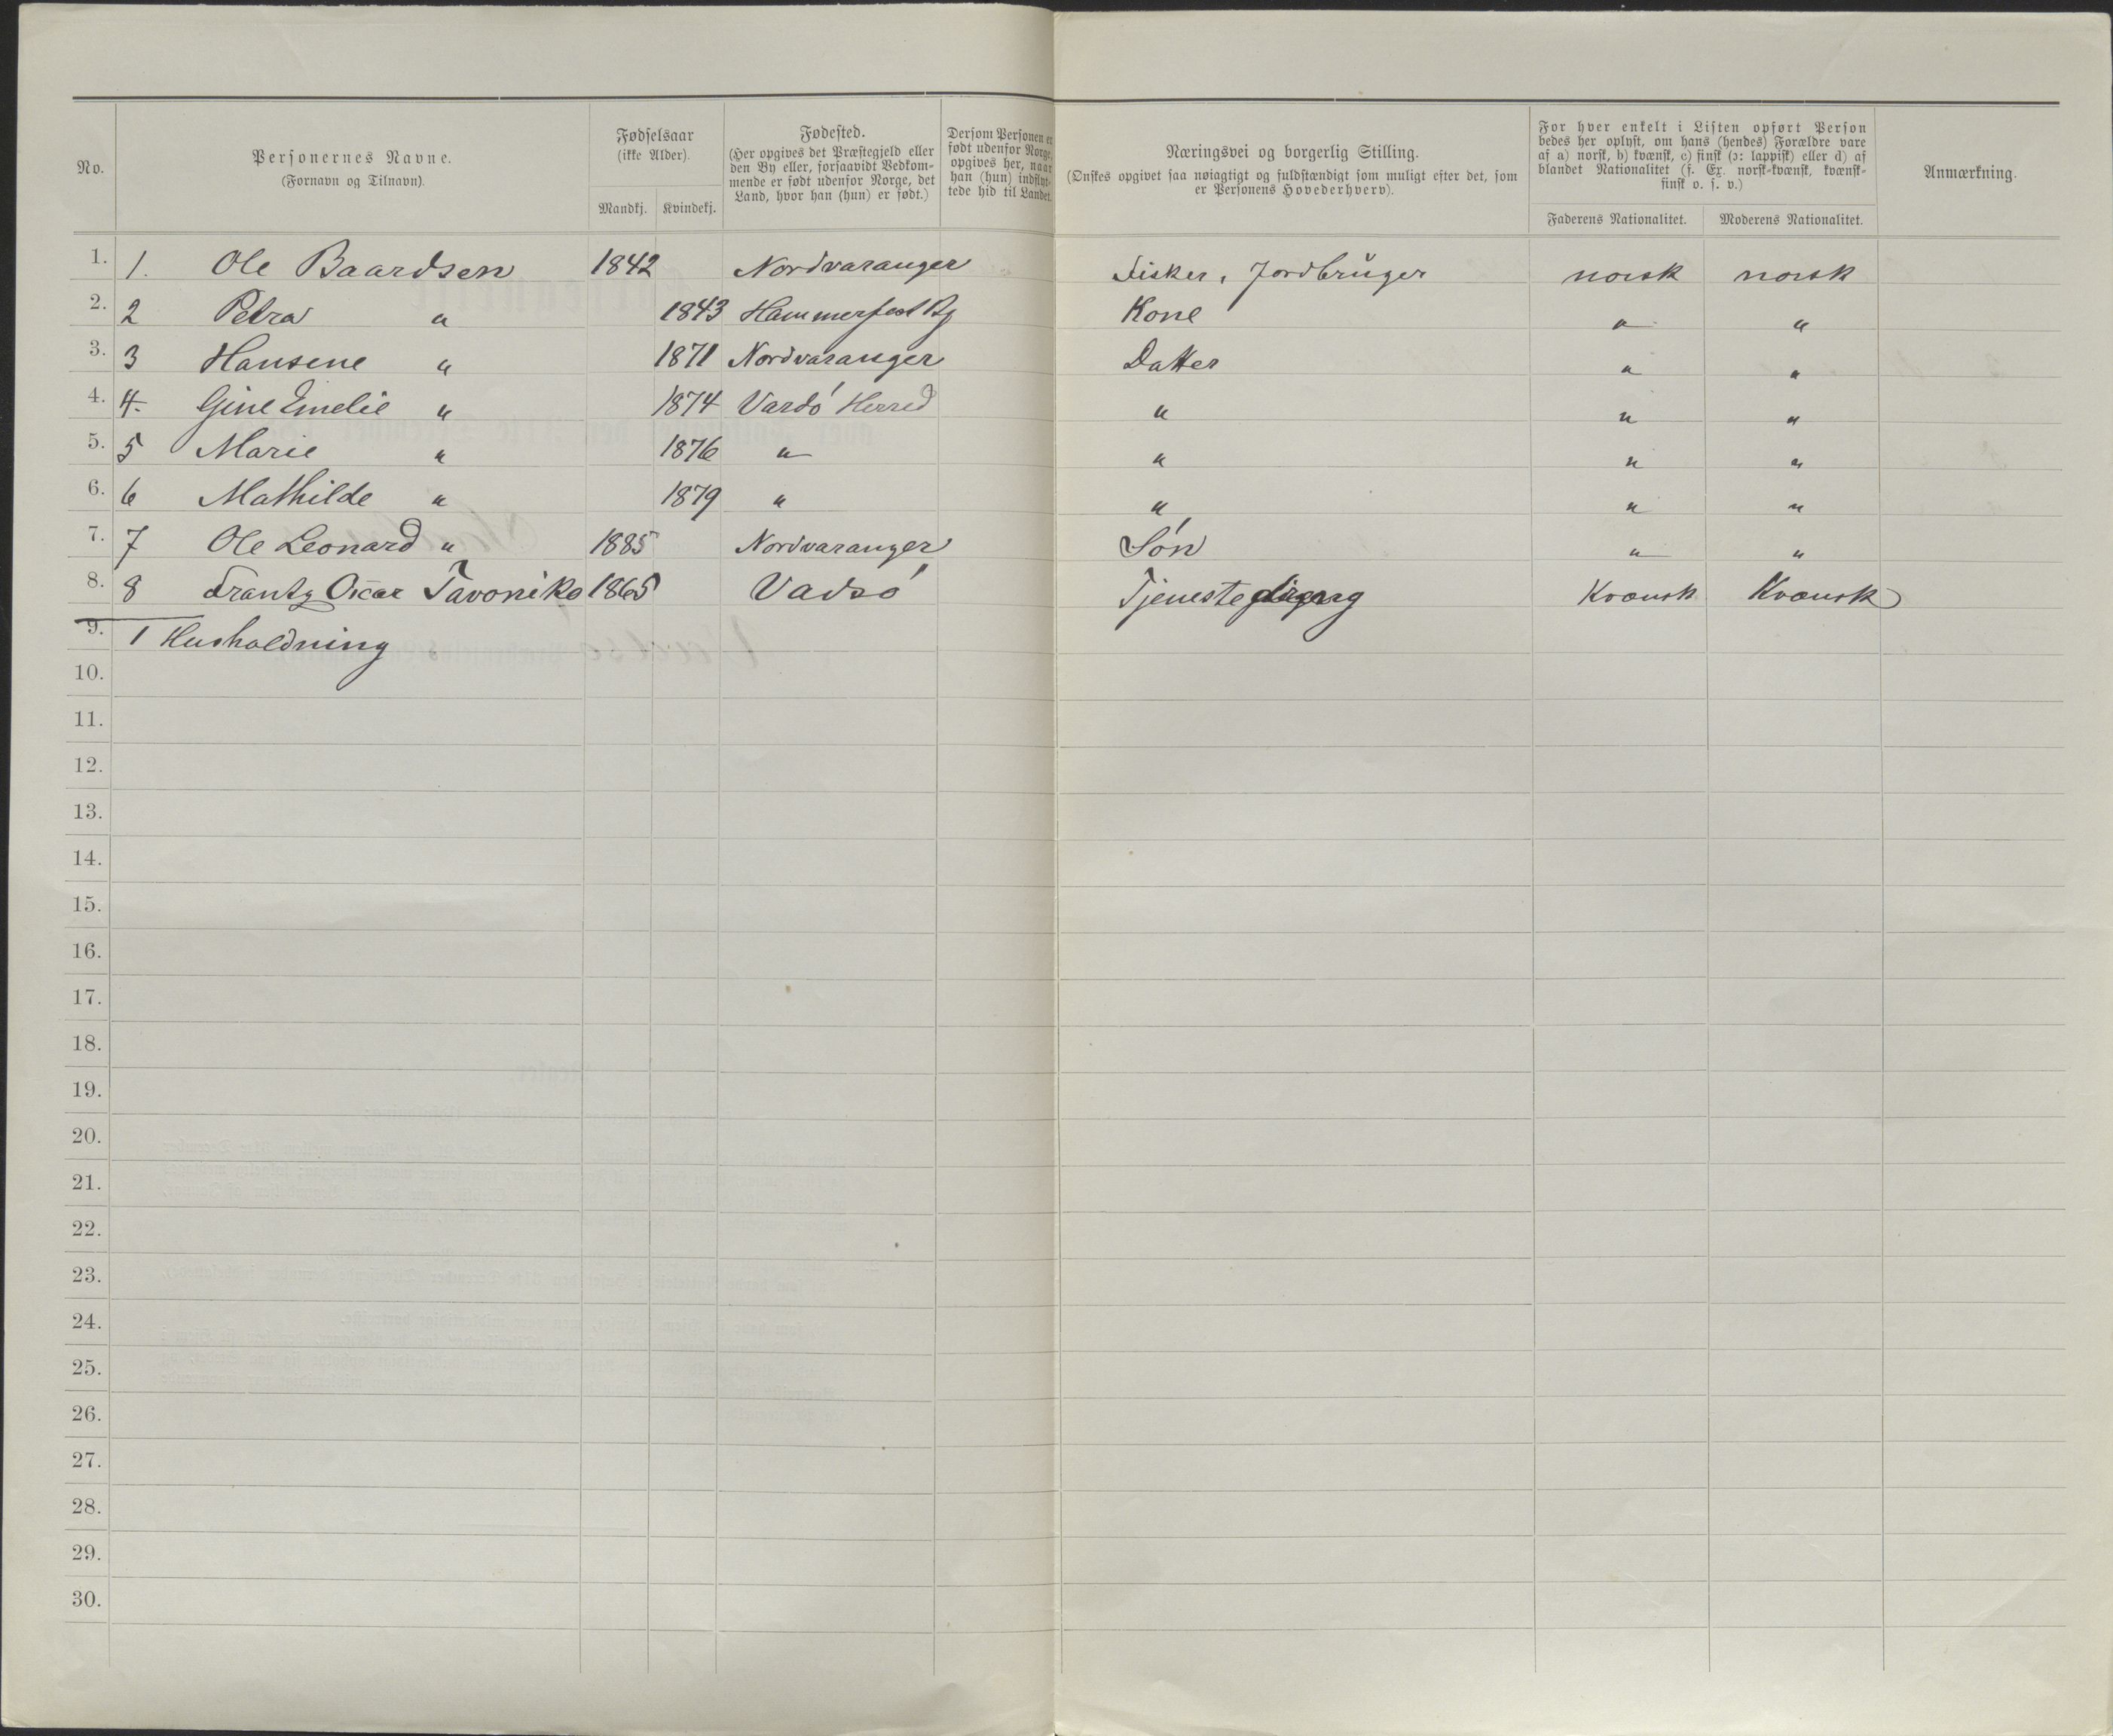 No.
Personernes Navne.
(Fornavn og Tilnavn).
Fødselsaar
(ikke Alder).
Mandkj. Kvindekj.
Fødested.
(Her opgives det Præstegjeld eller
den By eller, forsaavidt Vedkom-
mende er født udenfor Norge, det
Land, hvor han (hun) er født.)
Dersom Personen er
født udenfor Norge,
opgives her, naar
han (hun) indflyt-
tede hid til Landet.
Næringsvei og borgerlig Stilling.
(Ønskes opgivet saa nøiagtigt og fuldstændigt som muligt efter det, som
er Personens Hovederhverv).
For hver enkelt i Listen opført Person
bedes her oplyst, om hans (hendes) Forældre vare
af a) norsk, b) kvænsk, c) finsk (ɔ: lappisk) eller d) af
blandet Nationalitet (f. Ex. norsk-kvænsk, kvænsk-
finsk o. s. v.)
Faderens Nationalitet. Moderens Nationalitet.
Anmærkning.
1. 1. Ole Baardsen 1842 Nordvaranger Fisker, Jordbrŭger norsk norsk
2. 2 Petra " 1843 Hammerfest By Kone " "
3. 3 Hansene " 1871 Nordvaranger Datter " "
4. 4. Gine Emelie " 1874 Vardó Herred " " "
5. 5 Marie " 1876 " " " "
6. 6 Mathilde " 1879 " " " "
7. 7 Ole Leonard " 1885 Nordvaranger Són " "
8. 8 Frantz Oscar Tavoniko 1865 Vadsó Tjeneste Kvænsk Kvænsk
9. 1 Husholdning
10.
11.
12.
13.
14.
15.
16.
17.
18.
19.
20.
21.
22.
23.
24.
25.
26.
27.
28.
29.
30.